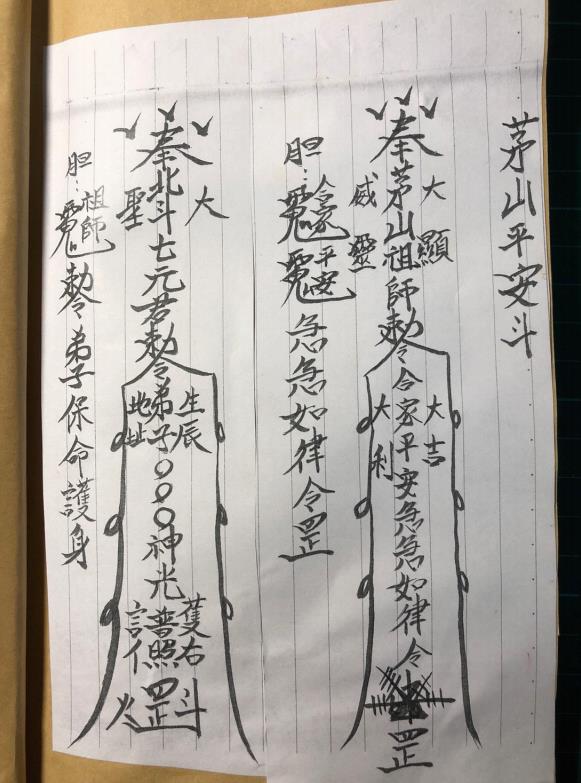 茅山平安斗
奉茅山祖師勅令合家平安急急如律令罡
大顯
威靈
大吉
大利
胆：
合家
平安
急急如律令罡
奉北斗七元君勅令弟子〇〇〇神光普照罡
大
聖
生辰
地址
斗
胆：
祖師
勅令弟子保命護身